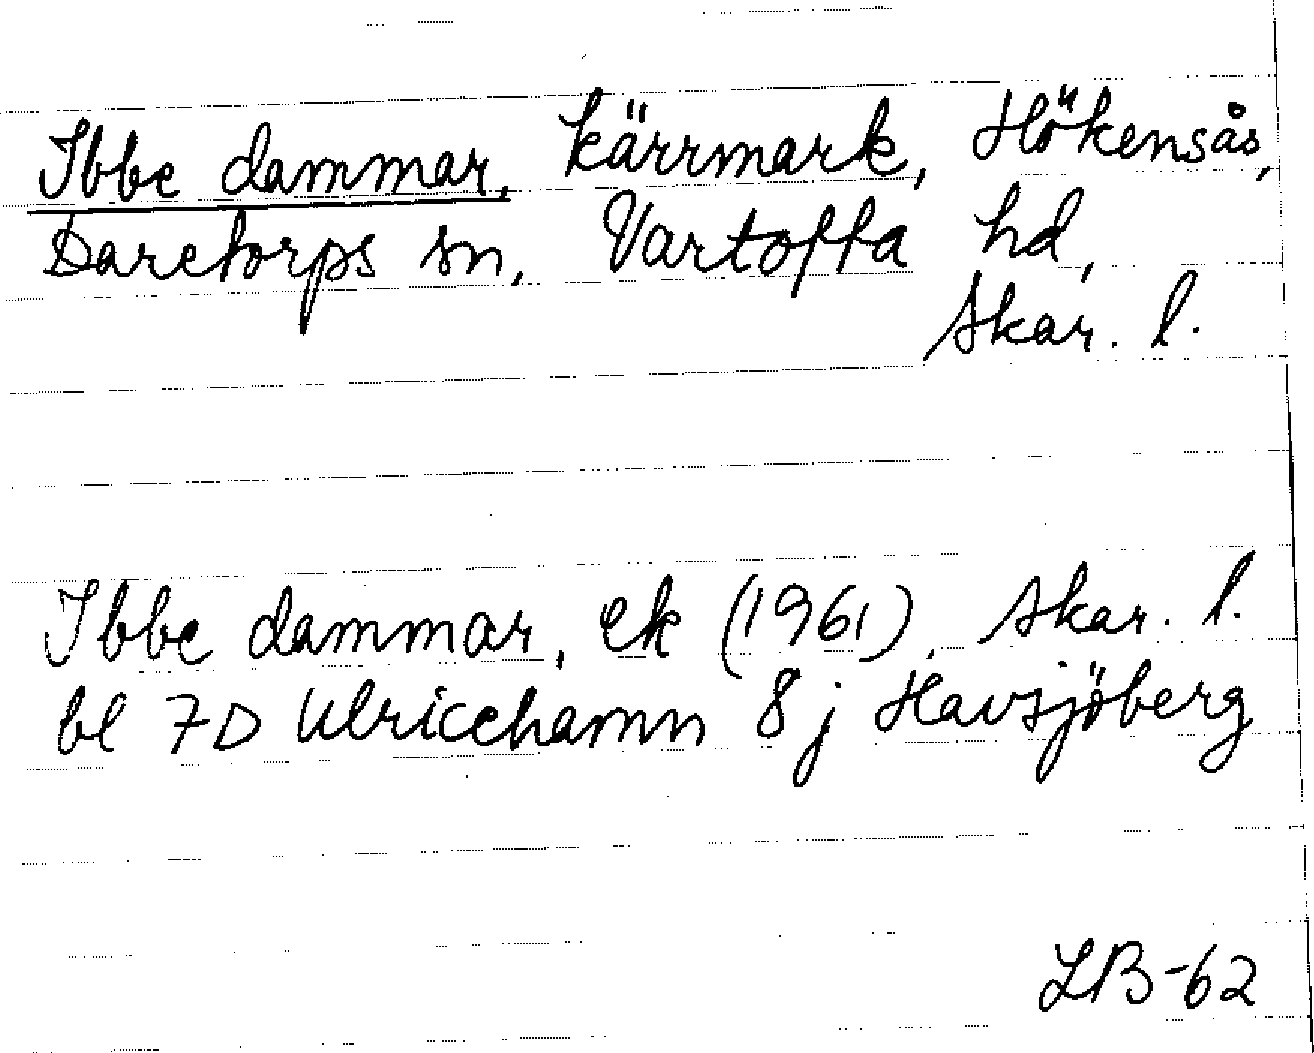 Ibbe dammar, kärrmark, Hökensås,
Daretorps sn, Vartofta hd,
Skar. l.
Ibbe dammar, ek (1961), Skar. l.
bl 7D Ulricehamn 8j Havsjöberg
LB-62